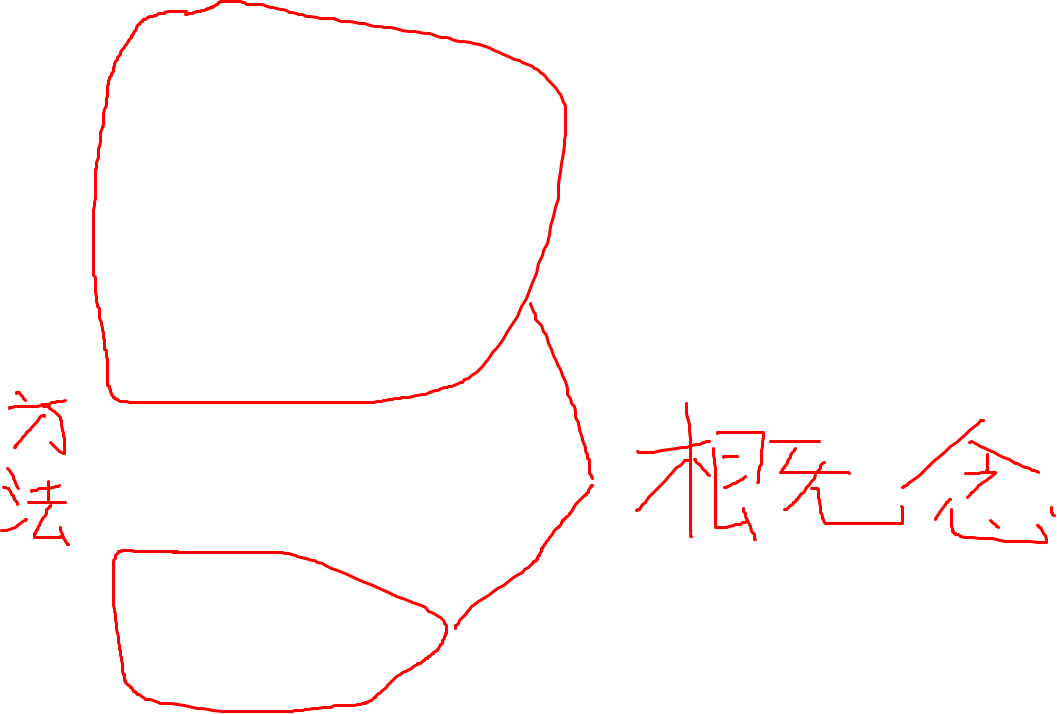 方法
概念